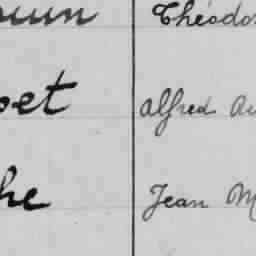 Théodo
oet Alfred Au
he Jean M